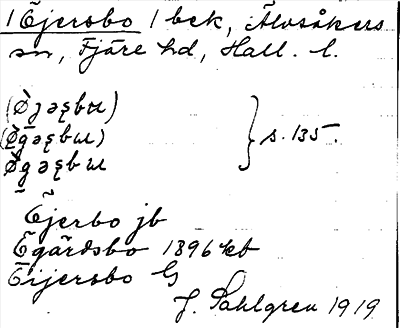 1 Ejersbo 1 bck, Älvsåkers
sn, Fjäre hd, Hall. l.
(Ø̀jəʂbɯ)
(Ø̀gəʂbɯ) } s. 135.
Ø̀gəʂbɯ
Ejerbo jb
Egärdsbo 1896 kb
Eijersbo G
J. Sahlgren 1919